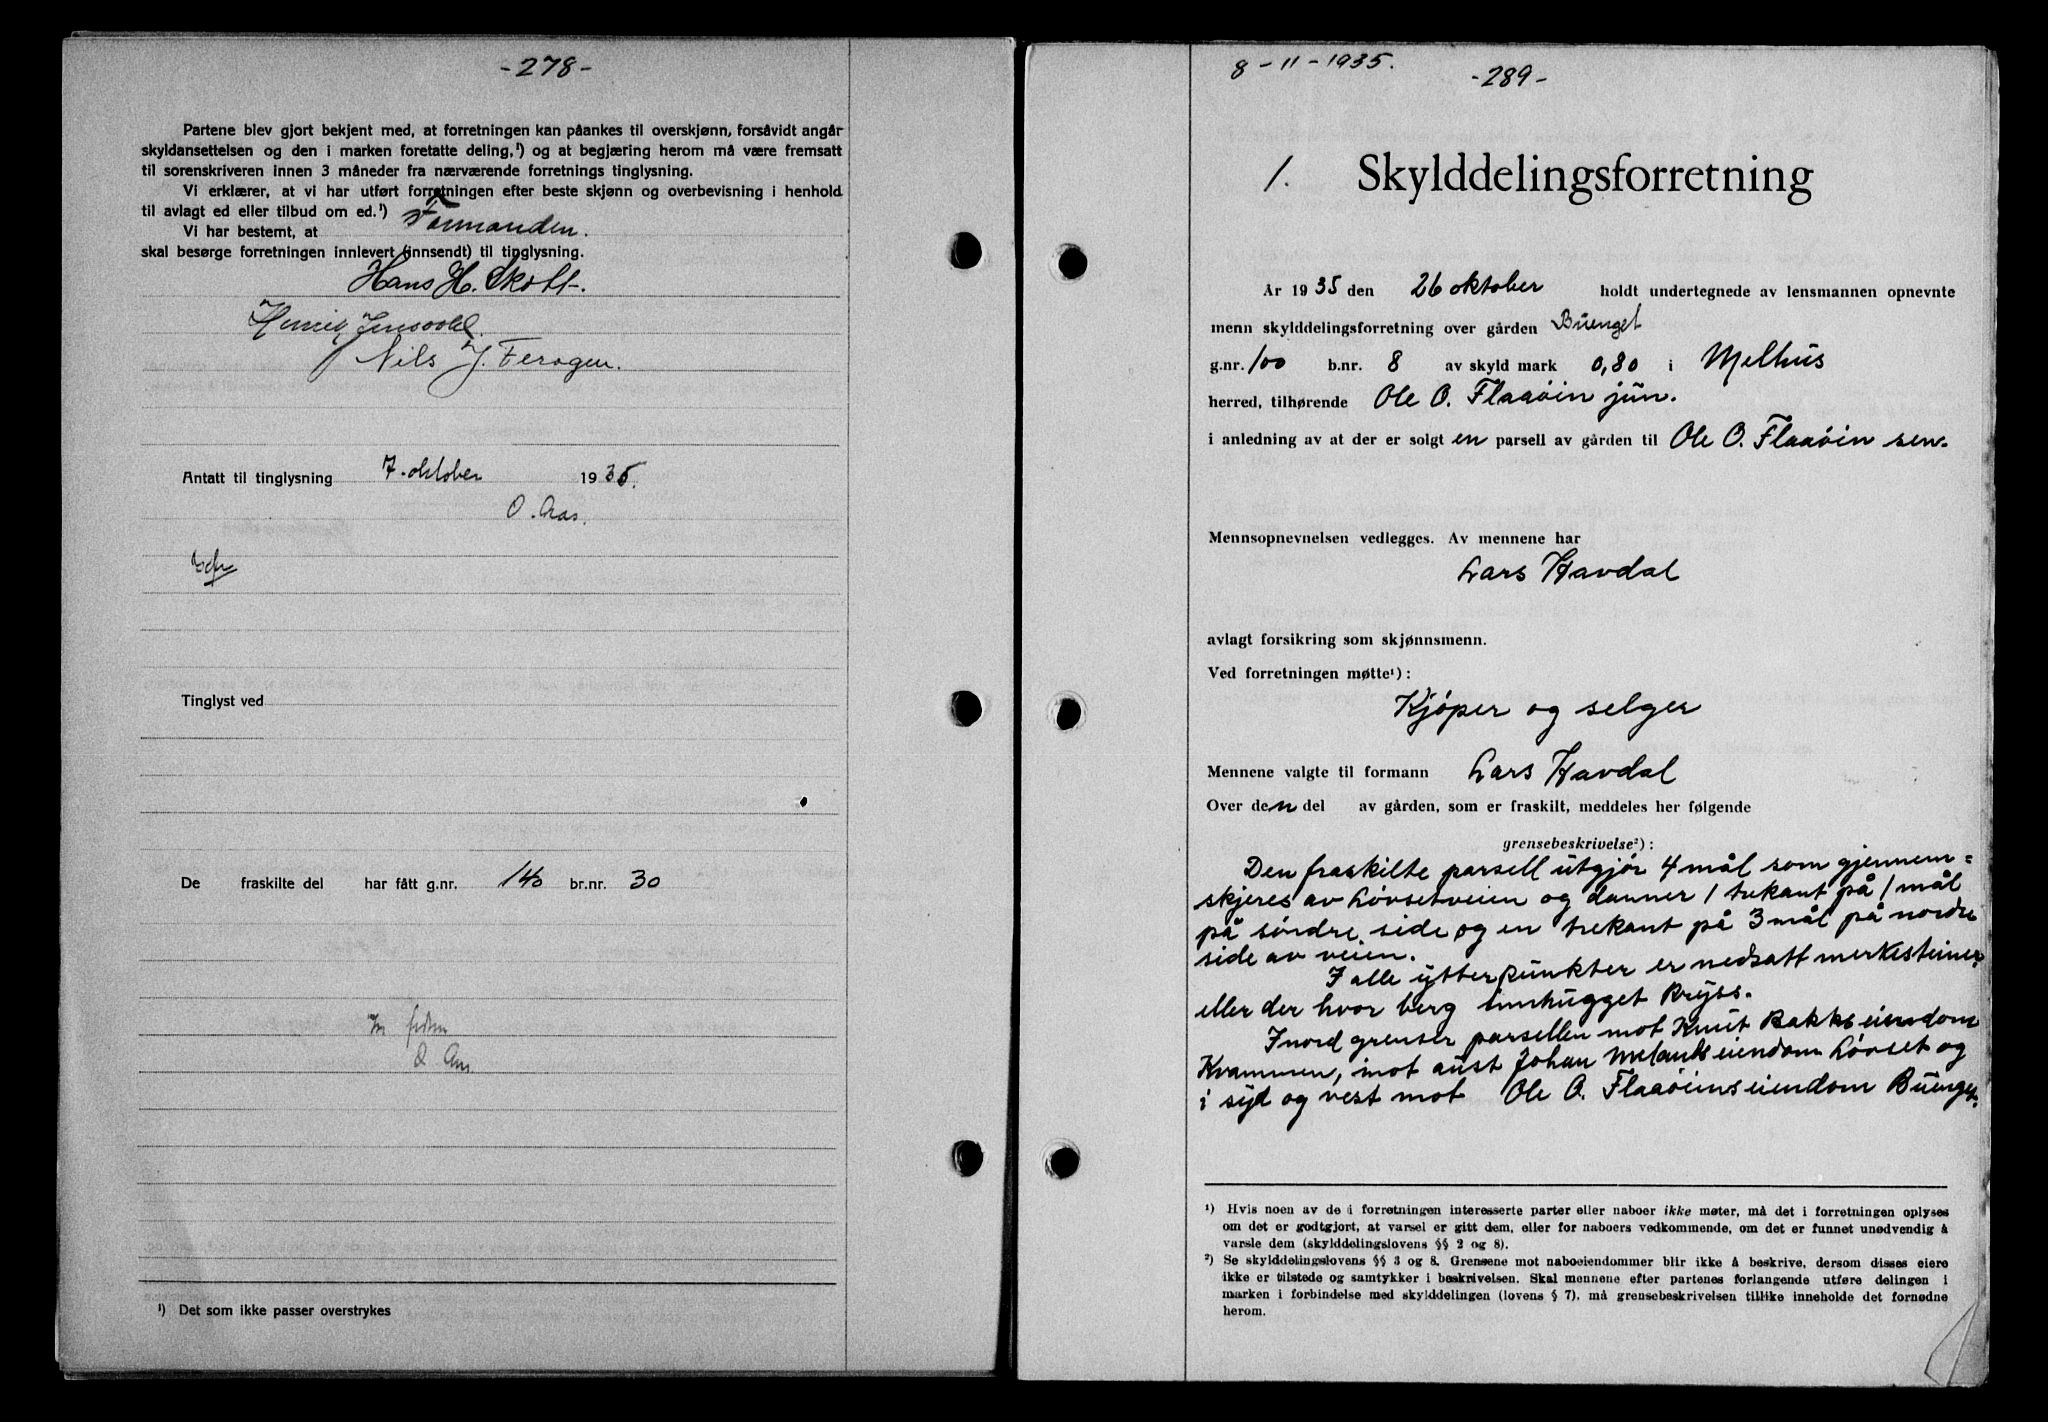 -278-
Partene blev gjort bekjent med, at forretningen kan påankes til overskjønn, forsåvidt angår
skyldansettelsen og den i marken foretatte deling,¹) og at begjæring herom må være fremsatt
til sorenskriveren innen 3 måneder fra nærværende forretnings tinglysning.
Vi erklærer, at vi har utført forretningen efter beste skjønn og overbevisning i henhold
til avlagt ed eller tilbud om ed.¹)
Vi har bestemt, at Formanden.
skal besørge forretningen innlevert (innsendt) til tinglysning.
Hans H. Skott.
Nils J. Feragen.
Antatt til tinglysning 7. oktober 1935.
O. Aas.
Tinglyst ved
De fraskilte del har fått g.nr. 140 br.nr. 30
O Aas
¹) Det som ikke passer overstrykes
8-11-1935.
-289-
1. Skylddelingsforretning
År 1935 den 26 oktober holdt undertegnede av lensmannen opnevnte
menn skylddelingsforretning over gården Buenget
g.nr. 100 b.nr. 8 av skyld mark 0,80 i Melhus
herred, tilhørende Ole O. Flaaøin jun.
i anledning av at der er solgt en parsell av gården til Ole O. Flaaøin sen.
Mennsopnevnelsen vedlegges. Av mennene har
Lars Havdal
avlagt forsikring som skjønnsmenn.
Ved forretningen møtte¹):
Kjøper og selger
Mennene valgte til formann Lars Havdal
Over den del av gården, som er fraskilt, meddeles her følgende
grensebeskrivelse²):
Den fraskilte parsell utgjør 4 mål som gjennem=
skjeres av Løvsetveien og danner 1 trekant på 1 mål
på søndre side og en trekant på 3 mål på nordre
side av veien.
I alle ytterpunkter er nedsatt merkesteiner
eller der hvor berg innhugget kryss.
I nord grenser parsellen mot Knut Bakks eiendom
Kvammen, mot aust Johan Melands eiendom Løvset og
i syd og vest mot Ole O. Flaaøins eiendom Buenget.
¹) Hvis noen av de i forretningen interesserte parter eller naboer ikke møter, må det i forretningen oplyses
om det er godtgjort, at varsel er gitt dem, eller for naboers vedkommende, om det er funnet unødvendig å
varsle dem (skylddelingslovens §§ 2 og 8).
²) Se skylddelingslovens §§ 3 og 8. Grensene mot naboeiendommer blir ikke å beskrive, dersom disses eiere
ikke er tilstede og samtykker i beskrivelsen. Skal mennene efter partenes forlangende utføre delingen i
marken i forbindelse med skylddelingen (lovens § 7), må grensebeskrivelsen tillike inneholde det fornødne
herom.